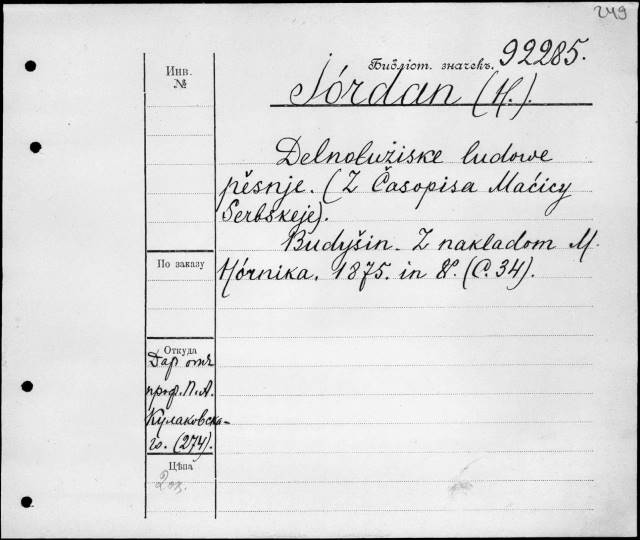 249
Библіот. значекъ. 92285.
Инв.
№
Jórdan (H.).
Delnołužiske ludowe
pěsnje. (Z Časopisa Maćicy
Serbskeje).
Budyšin. Z nakładom M.
Hórnika. 1875. in 8°. (С. 34).
По заказу
Откуда
Дар отъ
проф. П. А.
Кулаковска-
го. (274).
Цѣна